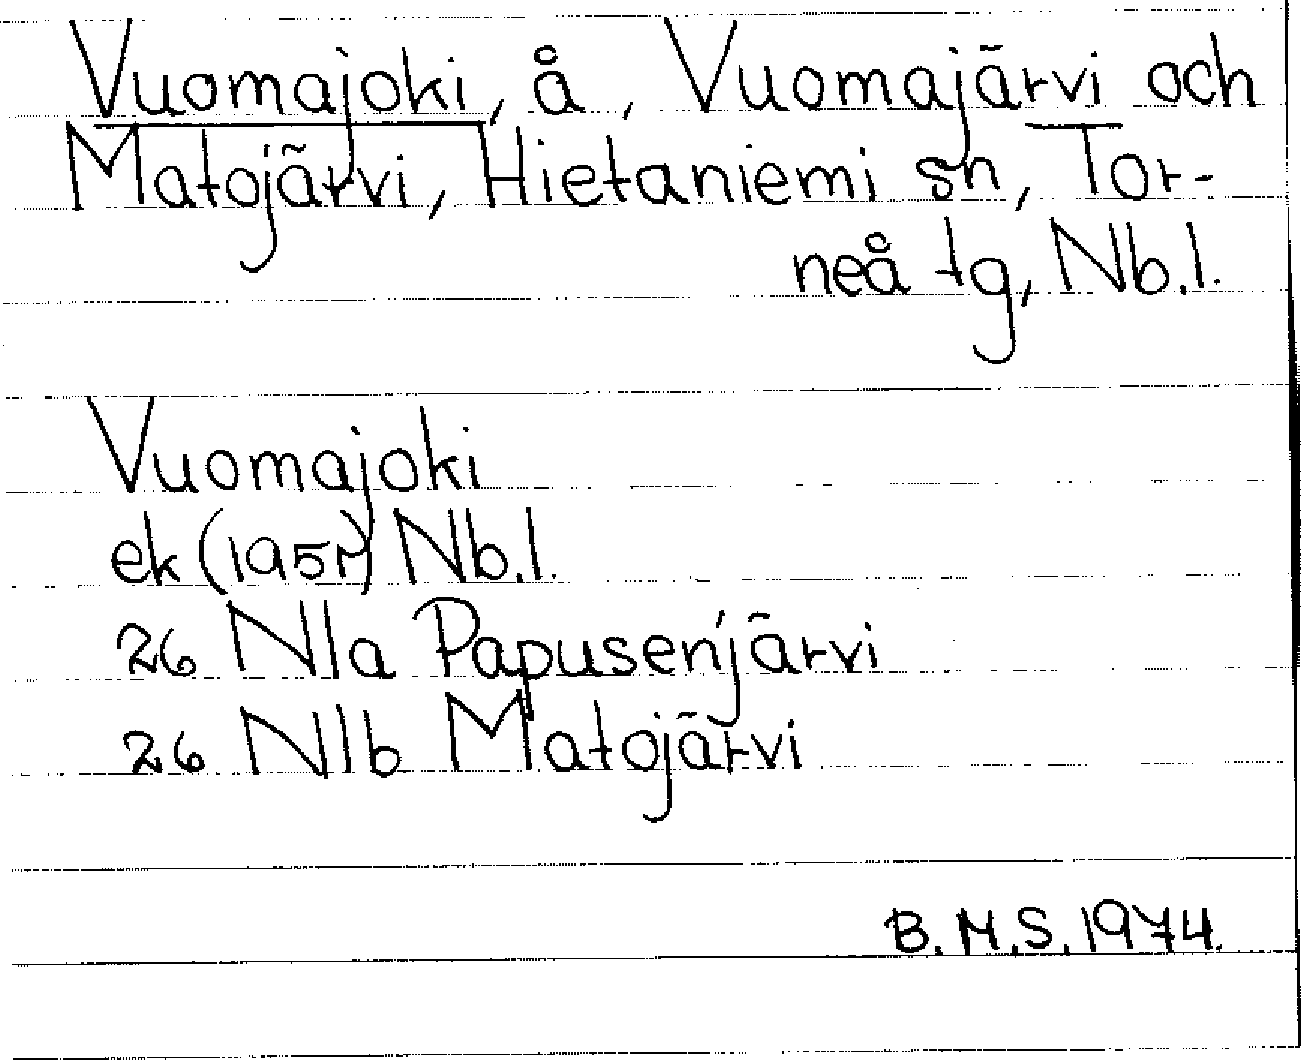 Vuomajoki, å, Vuomajärvi och
Matojärvi, Hietaniemi sn, Tor-
neå tg, Nb.l.
Vuomajoki
ek (1951) Nb.l.
26 N1a Papusenjärvi
26 N1b Matojärvi
B.M.S. 1974.